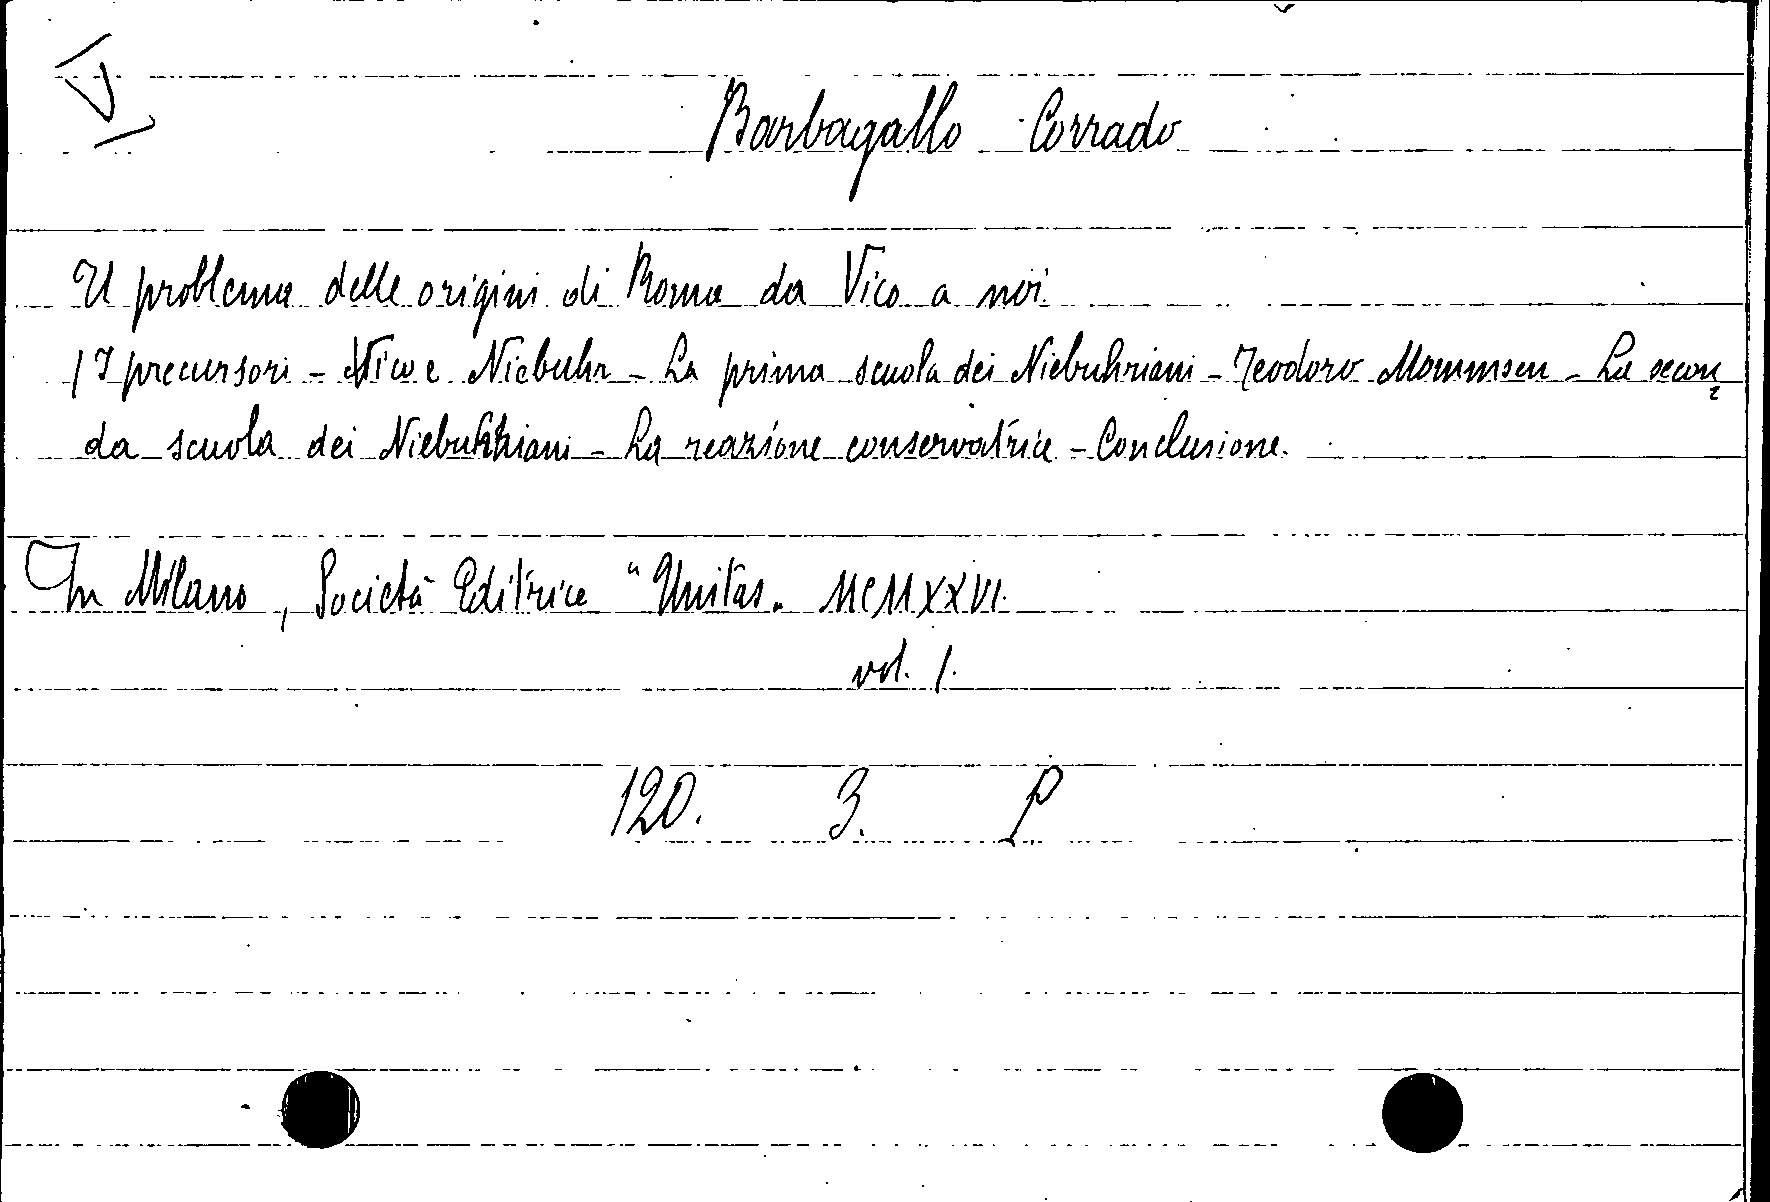 Barbagallo Corrado
Il problema delle origini di Roma da Vico a noi.
/I precursori - Vico e Niebuhr - La prima scuola dei Niebuhriani - Teodoro Mommsen - La secon
da scuola dei Niebuhriani - La reazione conservatrice - Conclusione.
In Milano, Società Editrice "Unitas„ MCMXXVI.
vol. 1.
120. 3. P